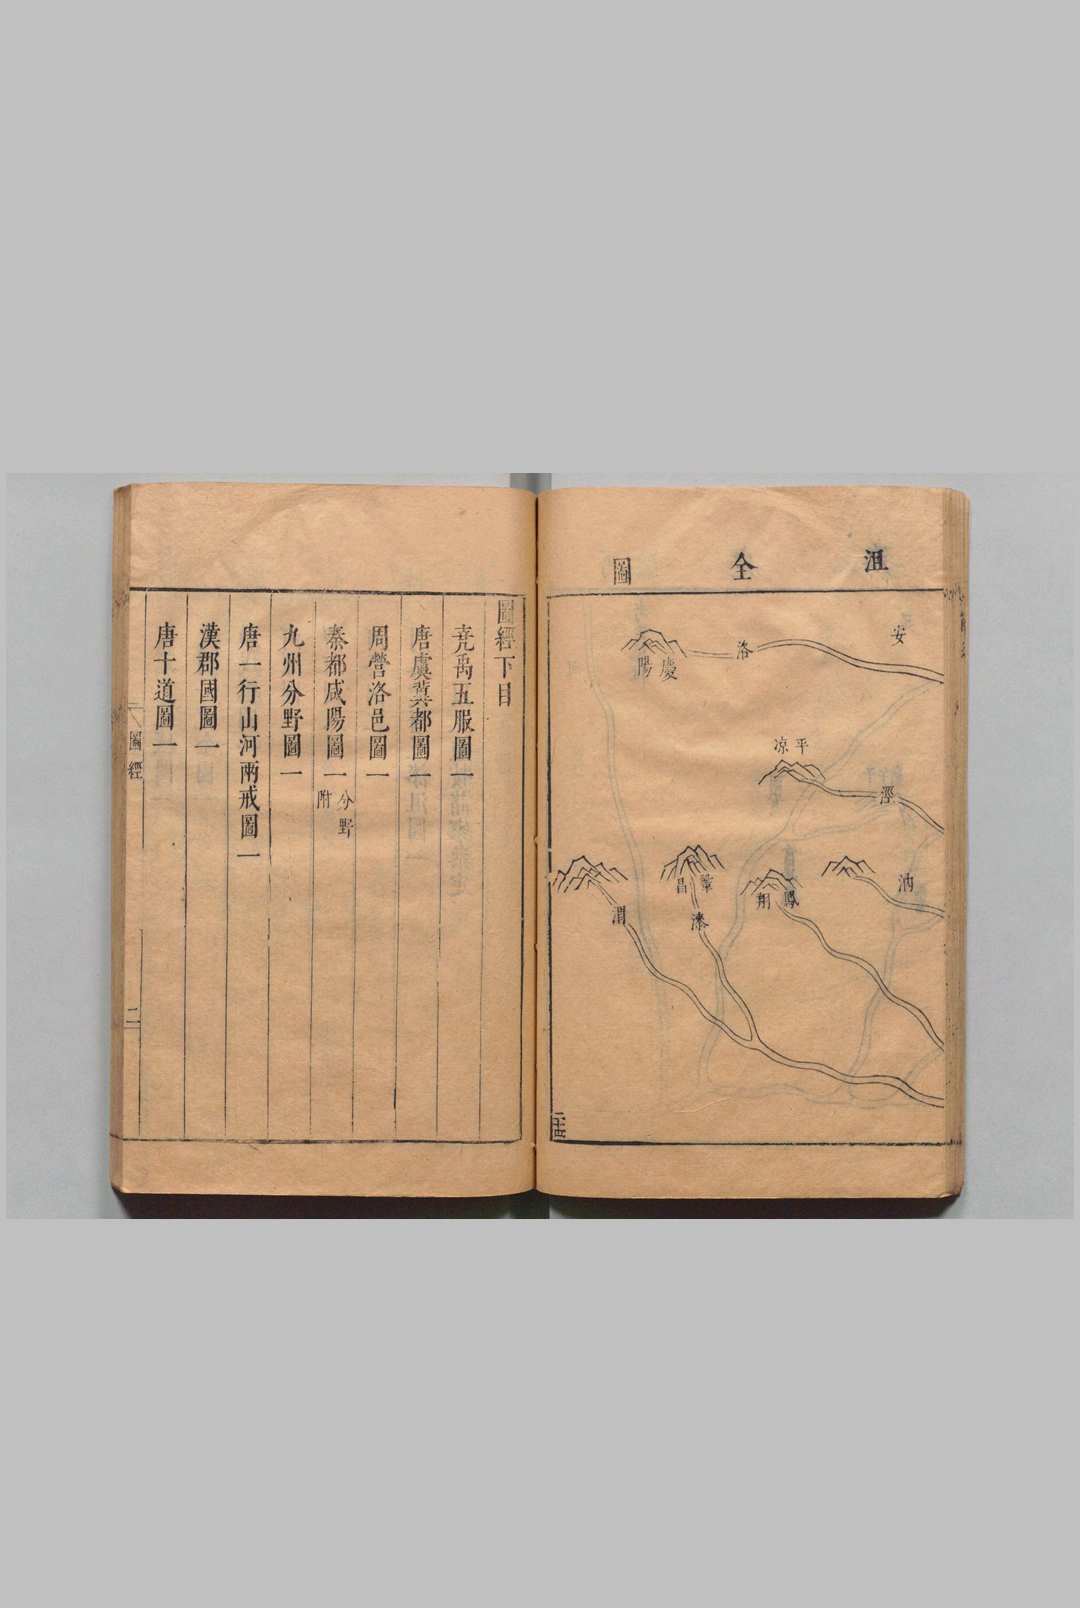 沮全圖
安
慶陽
洛
平凉
涇
汭
鳳翔
鞏昌
漆
渭
二十四
圖經下目
堯禹五服圖一
唐虞冀都圖一
周營洛邑圖一
秦都咸陽圖一分野附
九州分野圖一
唐一行山河兩戒圖一
漢郡國圖一
唐十道圖一
圖經
二